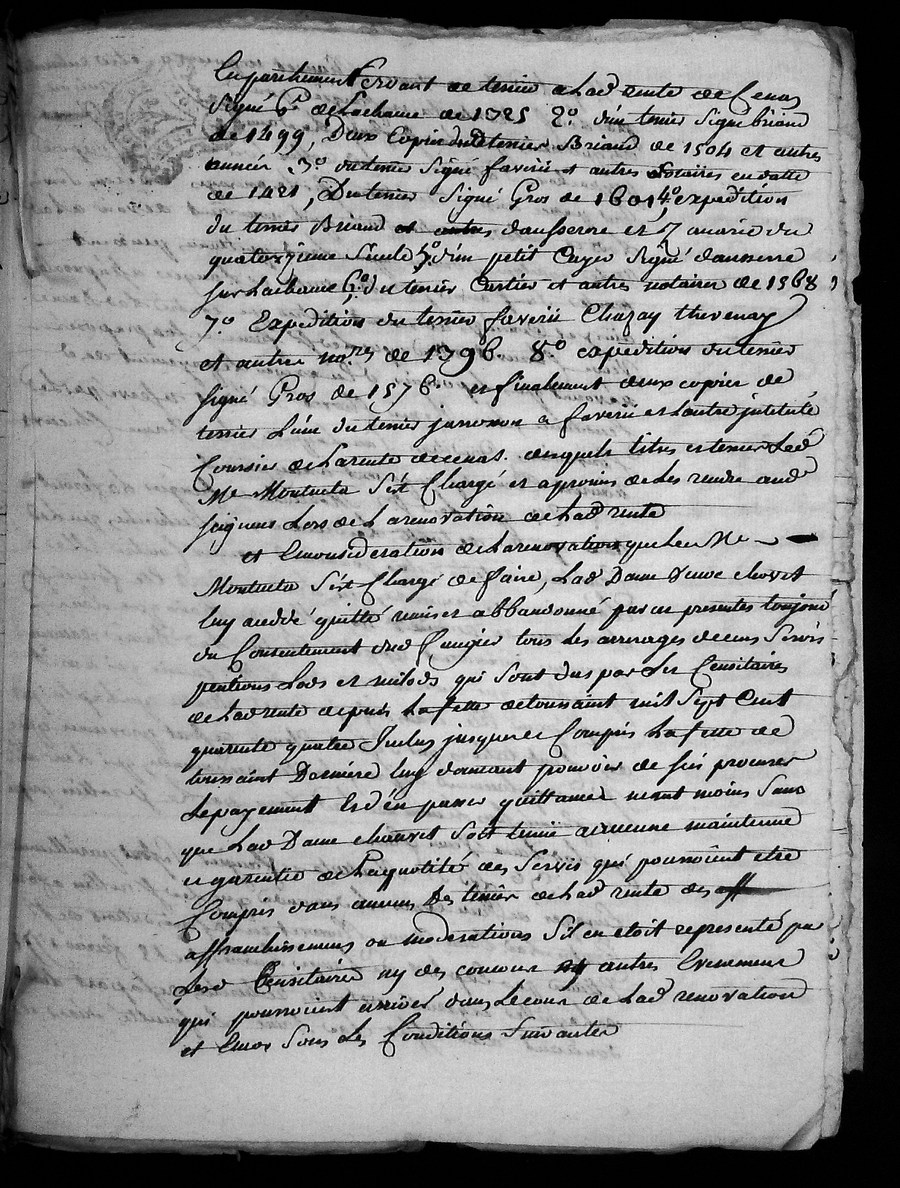 En parchement servant de terrier a Lad rente de Cenas
signé P. de Lachaume de 1325 2o. d'un terrier signé briand
de 1499, Deux Copies dud terrier Briand de 1504 et autres
années 3o. du terrier signé faverü et autres Notaires en datte
de 1421, Du terrier Signé Gros de 1601 4o. expedition
du terrier Briand et autres dausserre et Zanarie du
quatorzieme Siecle 5o. d'un petit Cayer Signé dausserre
sur Lachaume 6o. du terrier Cartier et autres notaires de 1368
7o. Expedition du terrier faverü Chazay thevenay
et autres nores de 1396. 8o. expedition du terrier
signé Pros de 1576 et finalement deux copies de
terrier L'une du terrier jusson a faverü et L'autre jntitulé
Coursier de La rente de cenas. desquels titres et terriers Led
Me Montueta S'est Chargé et a promis de Les rendre aud
seigneur Lors de La renovation de Lad rente
et En consideration de La renovation que Led Me
Montueta S'est Chargé de faire, Lad Dame Veuve chovet
luy a cedé quitté remis et abbandonné par ces presentes toujours
du Consentement dud Cuzieu tous Les arrerages de cens Servis
pentions Lods et milods qui Sont dus par Les Censitaires
de Lad rente depuis La fette de toussaint mil Sept Cent
quarente quatre Jnclus jusques et Compris La fette de
toussaint Derniere luy donnant pouvoir de s'en procurer
Le payement Et d'en passer quittances neant moins Sans
que Lad Dame chovet Soit tenüe a aucune maintenue
et garentie de La quotité des Servis qui pourroient etre
Compris dans aucuns Des terriers de Lad rente des aff
affranchissemens ou moderations S'il en etoit representé par
Lesd Censitaires ny des concours ny autres Evenemens
qui pourroient arriver dans Le cours de Lad renovation
et Encor Sous Les Conditions Suivantes